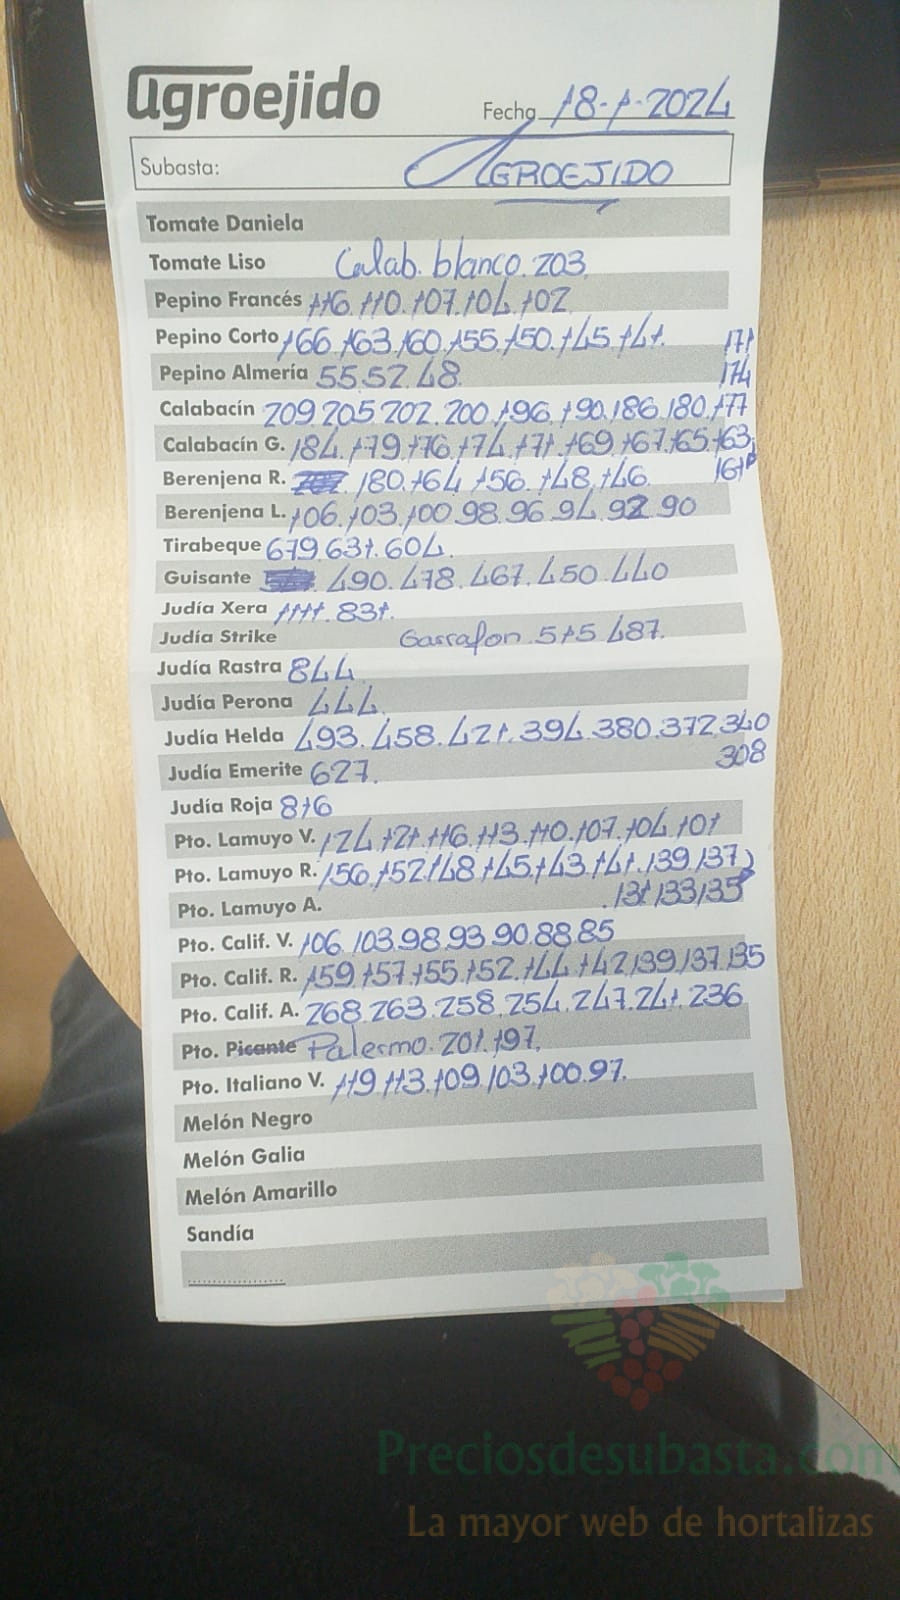 agroejido
Fecha 18-1-2024
Subasta: AGROEJIDO
Tomate Daniela
Tomate Liso Calab. blanco. 203.
Pepino Francés 116. 110. 107. 104. 102
Pepino Corto 166. 163. 160. 155. 150. 145. 141.
171
Pepino Almería 55. 52. 48.
174
Calabacín 209. 205. 202. 200. 196. 190. 186. 180. 177
Calabacín G. 184. 179. 176. 174. 171. 169. 167. 165. 163
161
Berenjena R. 180. 164. 156. 148. 146.
Berenjena L. 106. 103. 100. 98. 96. 94. 92. 90
Tirabeque 679. 631. 604.
Guisante 490. 478. 467. 450. 440
Judía Xera 1111. 831.
Judía Strike Garrafon. 515. 487.
Judía Rastra 844
Judía Perona 444.
Judía Helda 493. 458. 421. 394. 380. 372. 340
308
Judía Emerite 627.
Judía Roja 816
Pto. Lamuyo V. 124. 121. 116. 113. 110. 107. 104. 101
Pto. Lamuyo R. 156. 152. 148. 145. 143. 141. 139. 137
131. 133. 135
Pto. Lamuyo A.
Pto. Calif. V. 106. 103. 98. 93. 90. 88. 85
Pto. Calif. R. 159. 157. 155. 152. 144. 142. 139. 137. 135
Pto. Calif. A. 268. 263. 258. 254. 247. 241. 236
Pto. Picante Palermo. 201. 197.
Pto. Italiano V. 119. 113. 109. 103. 100. 97.
Melón Negro
Melón Galia
Melón Amarillo
Sandía
Preciosdesubasta.com
La mayor web de hortalizas